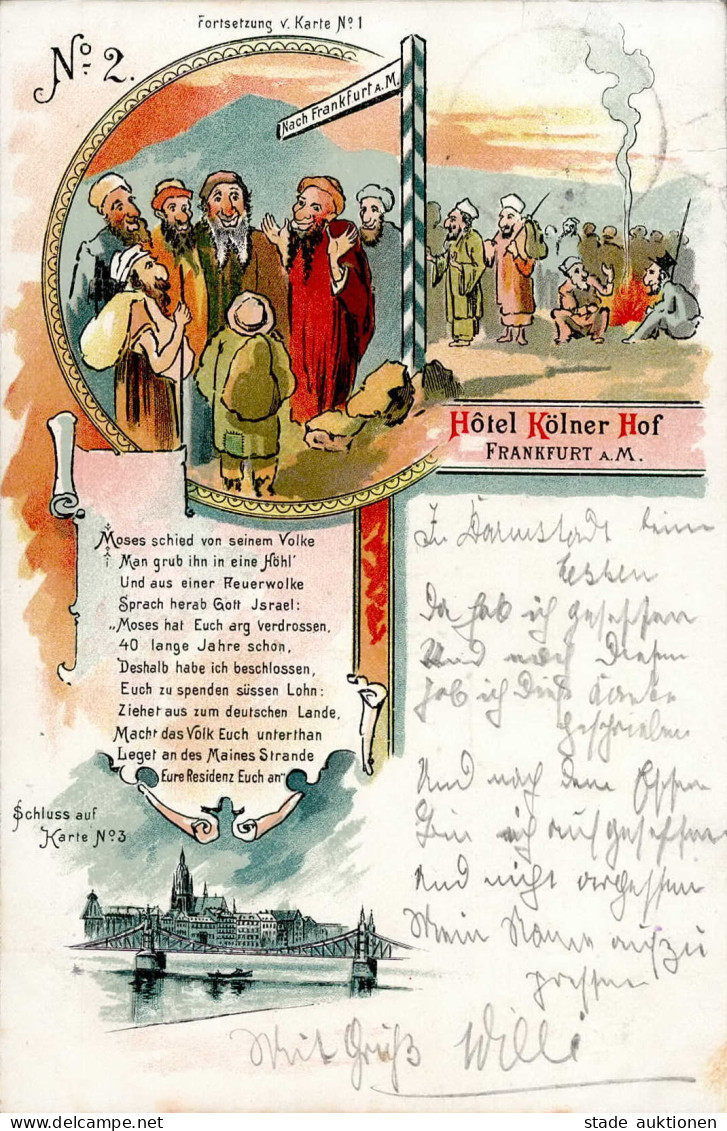 Fortsetzung v. Karte Nº 1
Nº 2.
Nach Frankfurt A.M.
Hôtel Kölner Hof
FRANKFURT A.M.
Moses schied von seinem Volke
Man grub ihn in eine Höhl'
Und aus einer Feuerwolke
Sprach herab Gott Jsrael:
„Moses hat Euch arg verdrossen,
40 lange Jahre schon,
Deshalb habe ich beschlossen,
Euch zu spenden süssen Lohn:
Ziehet aus zum deutschen Lande,
Macht das Volk Euch unterthan
Leget an des Maines Strande
Eure Residenz Euch an"
Schluss auf
Karte Nº 3
In Darmstadt beim
Essen
Da hab ich gesessen
Und nach diesem
hab ich diese Karte
geschrieben
Und nach dem Essen
Bin ich aufgesessen
und nicht vergessen
Mein Name
Mit Gruß Willi
stade auktionen